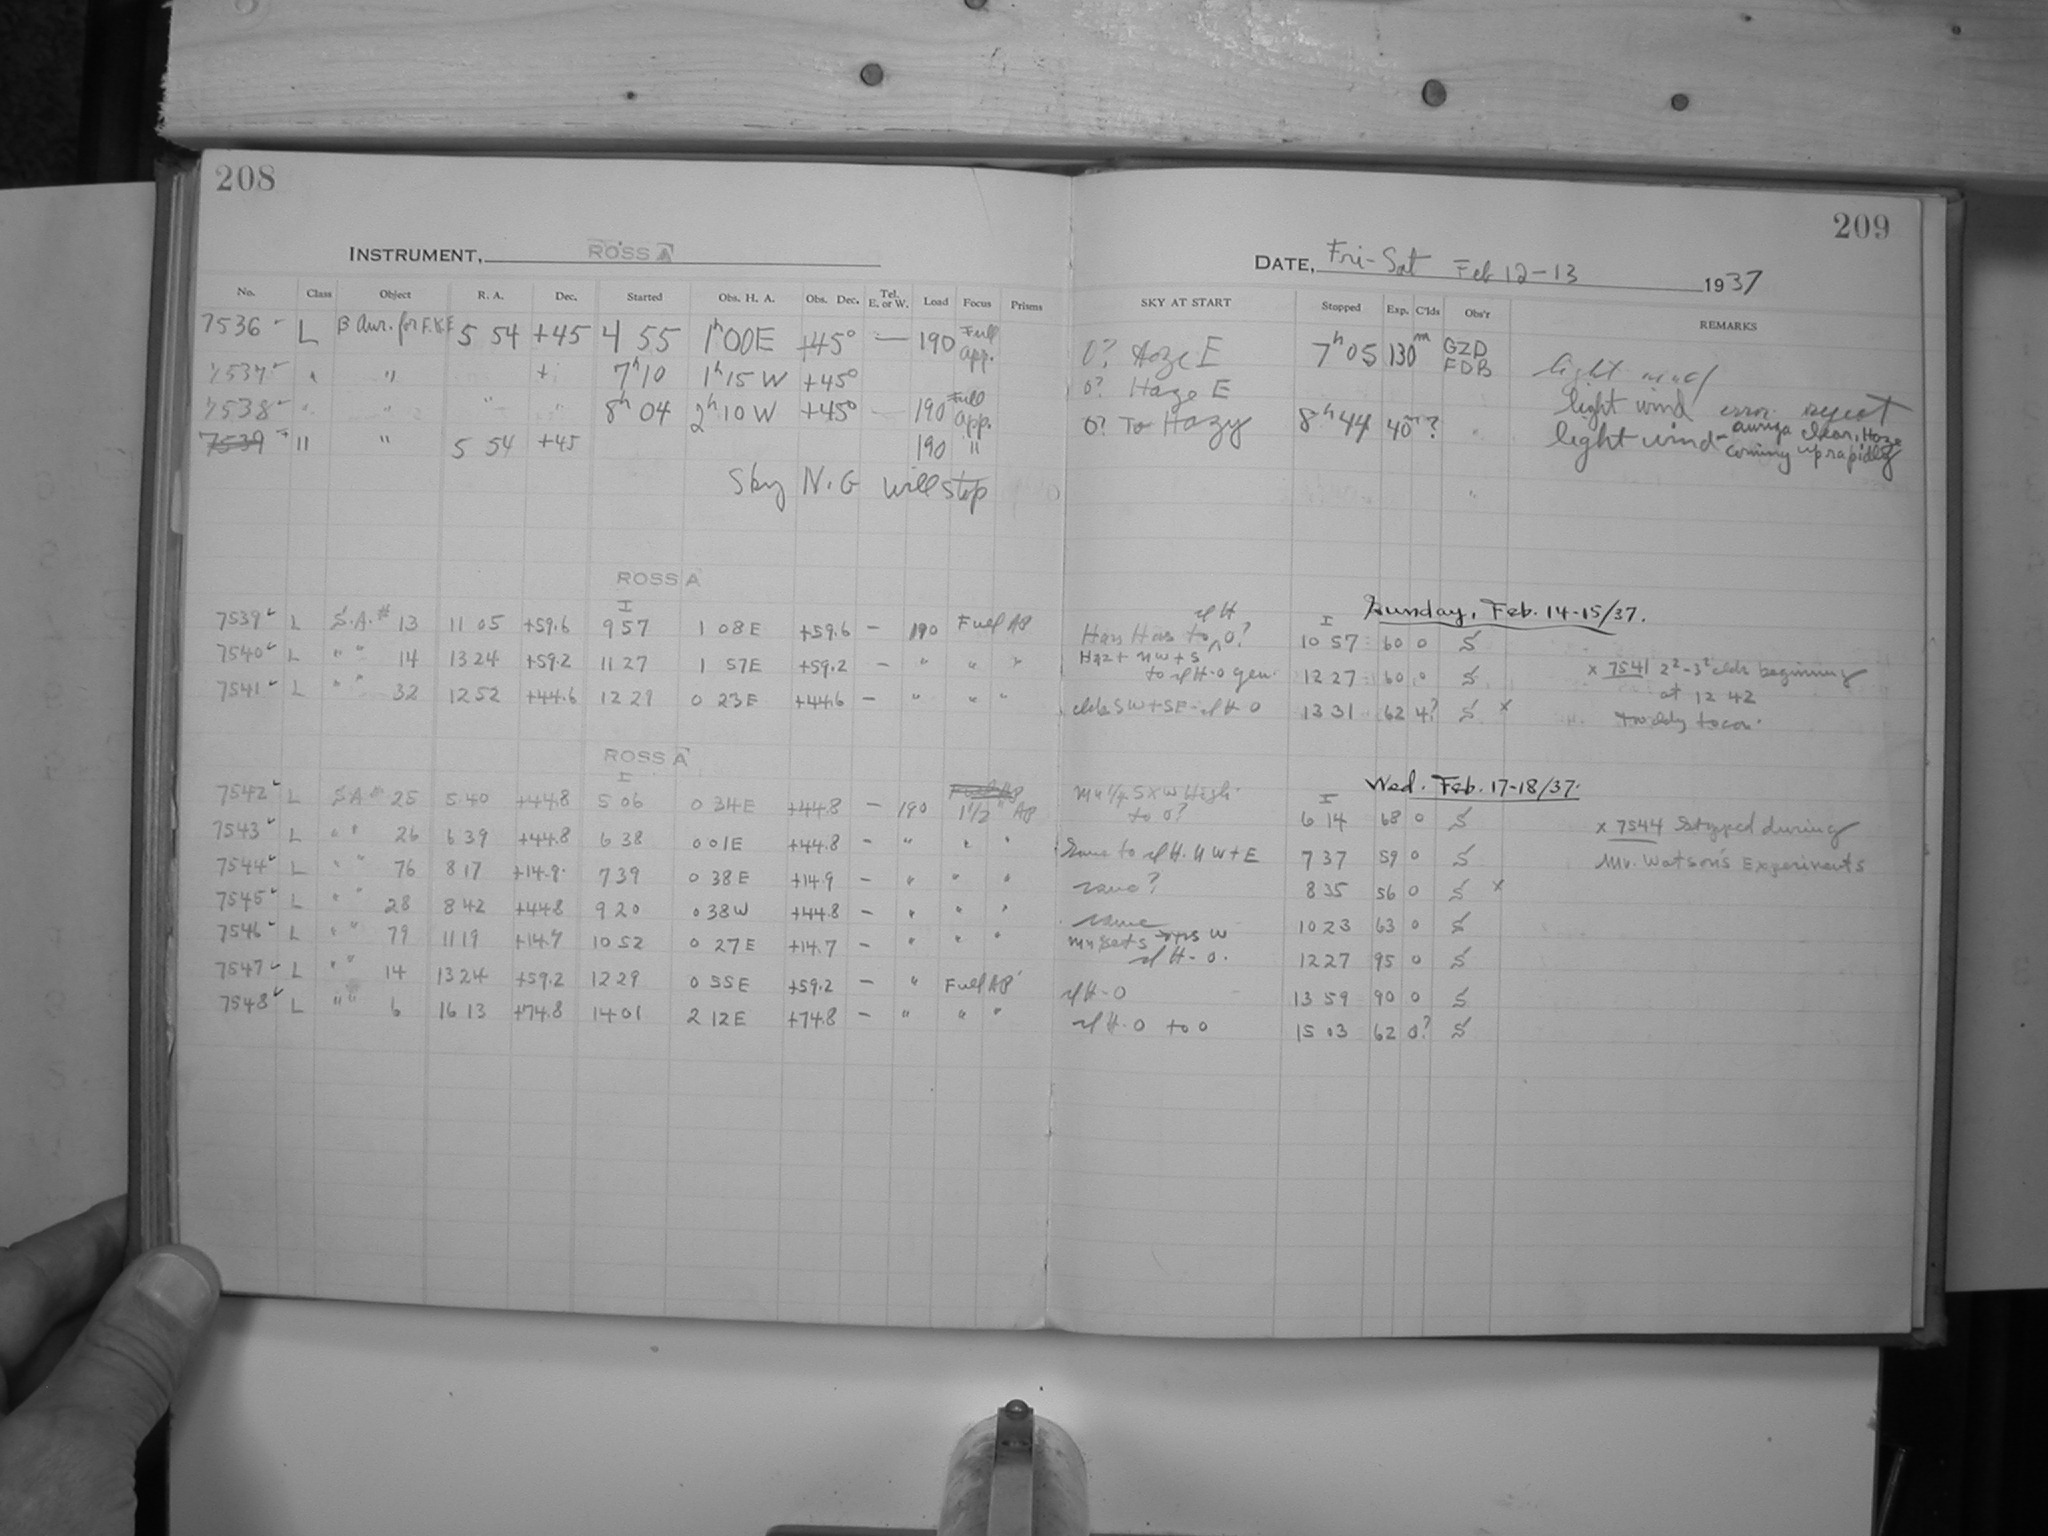 208
INSTRUMENT, ROSS A
No. Class Object R. A. Dec. Started Obs. H. A. Obs. Dec. Tel. E. or W. Load Focus Prisms
7536 L β Aur. for F.K.E 5 54 +45 4 55 1h00E +45° — 190 Full app.
7537 " " + 7h10 1h15W +45°
7538 " " " " 8h 04 2h10W +45° — 190 Full app.
7539 " " 5 54 +45 190 "
Sky N.G will stop
ROSS A
I
7539 L S.A.# 13 11 05 +59.6 9 57 1 08E +59.6 — 190 Full AP
7540 L " " 14 13 24 +59.2 11 27 1 57E +59.2 — " " "
7541 L " " 32 12 52 +44.6 12 29 0 23E +44.6 — " " "
ROSS A
I
7542 L S.A# 25 5 40 +44.8 5 06 0 34E +44.8 — 190 1 1/2" AP
7543 L " " 26 6 39 +44.8 6 38 0 01E +44.8 — " " "
7544 L " " 76 8 17 +14.9 7 39 0 38E +14.9 — " " "
7545 L " " 28 8 42 +44.8 9 20 0 38W +44.8 — " " "
7546 L " " 79 11 19 +14.7 10 52 0 27E +14.7 — " " "
7547 L " " 14 13 24 +59.2 12 29 0 55E +59.2 — " Full AP
7548 L " " 6 16 13 +74.8 14 01 2 12E +74.8 — " " "
209
DATE, Fri-Sat Feb 12-13 1937
SKY AT START Stopped Exp. C'lds Obs'r REMARKS
0? Haze E 7h05 130m GZD FDB light wind
0? Haze E light wind error repeat
0? To Hazy 8h44 40m? " light wind - auriga clear, Haze coming up rapidly
"
Sunday, Feb. 14-15/37.
I
to 0? 10 57 60 0 S
Haz + NW + S
to H-0 gen. 12 27 60 0 S x 7541 2²-3² clds beginning
at 12 42
clds SW+SE- H 0 13 31 62 4? S x
Wed. Feb. 17-18/37.
I
to 0? 6 14 68 0 S x 7544 Stopped during
Same to H. NW+E 7 37 59 0 S Mr. Watson's Experiments
same? 8 35 56 0 S x
same 10 23 63 0 S
Mn sets W
H-0. 12 27 95 0 S
H-0 13 59 90 0 S
H-0 to 0 15 03 62 0? S